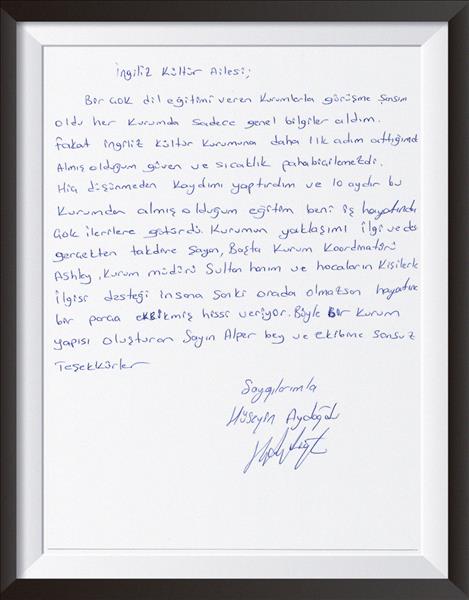 İngiliz Kültür Ailesi;
Bir çok dil eğitimi veren kurumlarla görüşme şansım
oldu her kurumda sadece genel bilgiler aldım.
Fakat ingiliz kültür kurumuna daha ilk adım attığımd
Almış olduğum güven ve sıcaklık pahabiçilemezdi.
Hiç düşünmeden kaydımı yaptırdım ve 10 aydır bu
kurumdan almış olduğum eğitim beni iş hayatında
çok ilerilere götürdü. Kurumun yaklaşımı ilgi ve
gerçekten takdire şayan, Başta Kurum Koordinatörü
Ashley, kurum müdürü Sultan hanım ve hocaların kişilerle
ilgisi desteği insana sanki orada olmazsan hayatına
bir parça eksikmiş hissi veriyor. Böyle Bir kurum
yapısı oluşturan Sayın Alper bey ve ekibine sonsuz
Teşekkürler
Saygılarımla
Hüseyin Aydoğdu